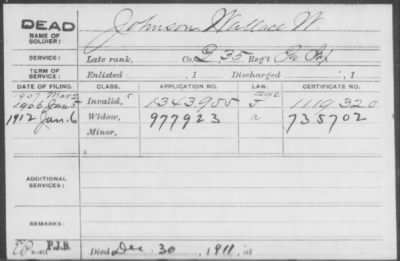 DEAD
NAME OF SOLDIER: Johnson Wallace W.
SERVICE: Late rank, Co. G, 35 Reg't Ga Inf
TERM OF SERVICE: Enlisted , 1 Discharged , 1
DATE OF FILING. CLASS. APPLICATION NO. LAW. CERTIFICATE NO.
1907 Mar 2
1906 Jan 5 Invalid, 1343955 J 1119320
1912 Jan. 6 Widow, 977923 a 735702
Minor,
ADDITIONAL SERVICES:
REMARKS:
P.J.B. Died Dec. 30, 1911, at